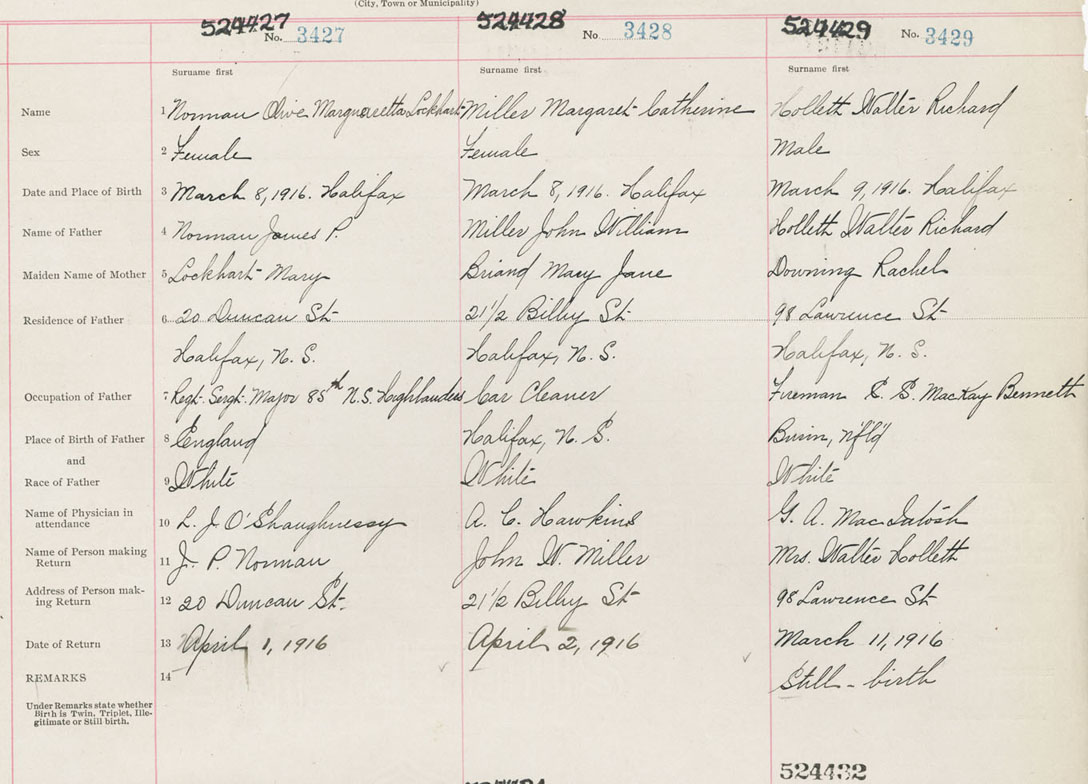 (City, Town or Municipality)
524427 No. 3427 524428 No. 3428 524429 No. 3429
Surname first Surname first Surname first
Name 1 Norman Olive Margueretta Lockhart Miller Margaret Catherine Holleth Walter Richard
Sex 2 Female Female Male
Date and Place of Birth 3 March 8, 1916. Halifax March 8, 1916. Halifax March 9, 1916. Halifax
Name of Father 4 Norman James P. Miller John William Holleth Walter Richard
Maiden Name of Mother 5 Lockhart Mary Briand Mary Jane Downing Rachel
Residence of Father 6 20 Duncan St 21 1/2 Bilby St 98 Lawrence St
Halifax, N. S. Halifax, N. S. Halifax, N. S.
Occupation of Father 7 Regt. Sergt. Major 85th N.S. Highlanders Car Cleaner Fireman S. S. MacKay Bennett
Place of Birth of Father 8 England Halifax, N. S. Burin, Nfld
and
Race of Father 9 White White White
Name of Physician in
attendance 10 L. J. O'Shaughnessy A. C. Hawkins G. A. MacIntosh
Name of Person making
Return 11 J. P. Norman John W. Miller Mrs. Walter Holleth
Address of Person mak-
ing Return 12 20 Duncan St. 21 1/2 Bilby St 98 Lawrence St
Date of Return 13 April 1, 1916 April 2, 1916 March 11, 1916
REMARKS 14 Still-birth
Under Remarks state whether
Birth is Twin, Triplet, Ille-
gitimate or Still birth.
524432